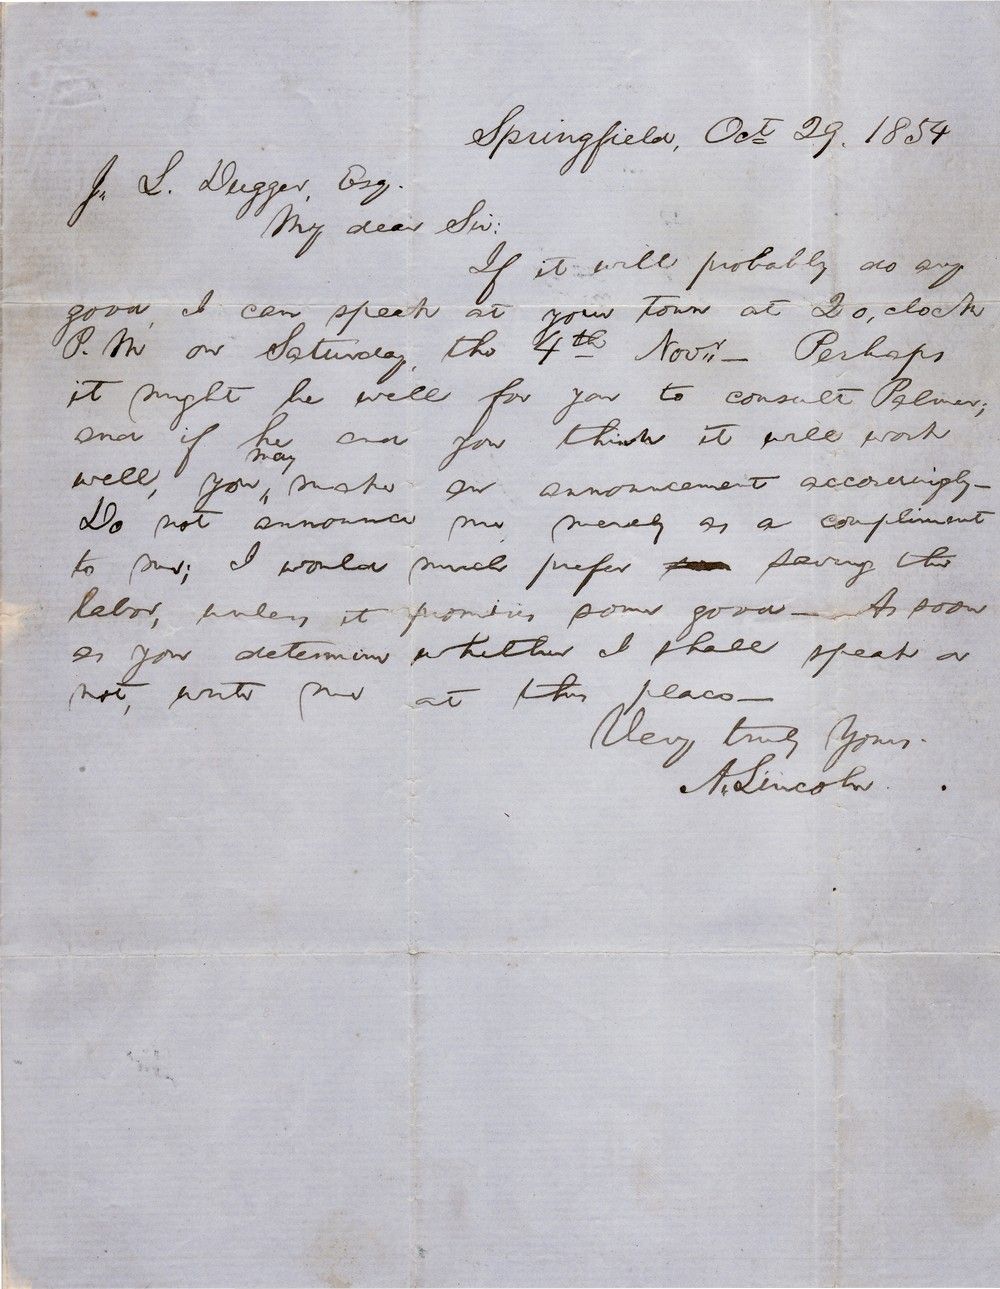 Springfield, Oct 29. 1854
J. L. Dugger, Esq.
My dear Sir:
If it will probably do any
good, I can speak at your town at 2 o,clock
P.M. on Saturday, the 4th Novr. — Perhaps
it might be well for you to consult Palmer;
and if he and you think it will work
may
well, you make an announcement accordingly—
Do not announce me merely as a compliment
to me; I would much prefer saving the
labor, unless it promises some good— As soon
as you determine whether I shall speak or
not, write me at this place—
Very truly Yours.
A. Lincoln.